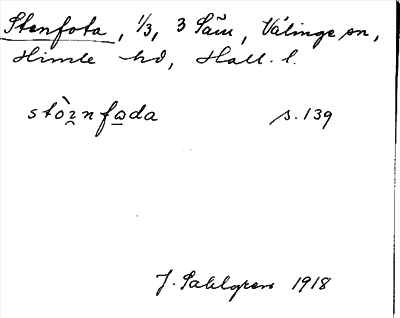 Stenfota, 1/3, 3 Såm, Valinge sn,
Himle hd, Hall. l.
stòɪnfada s. 139
J. Sahlgren 1918